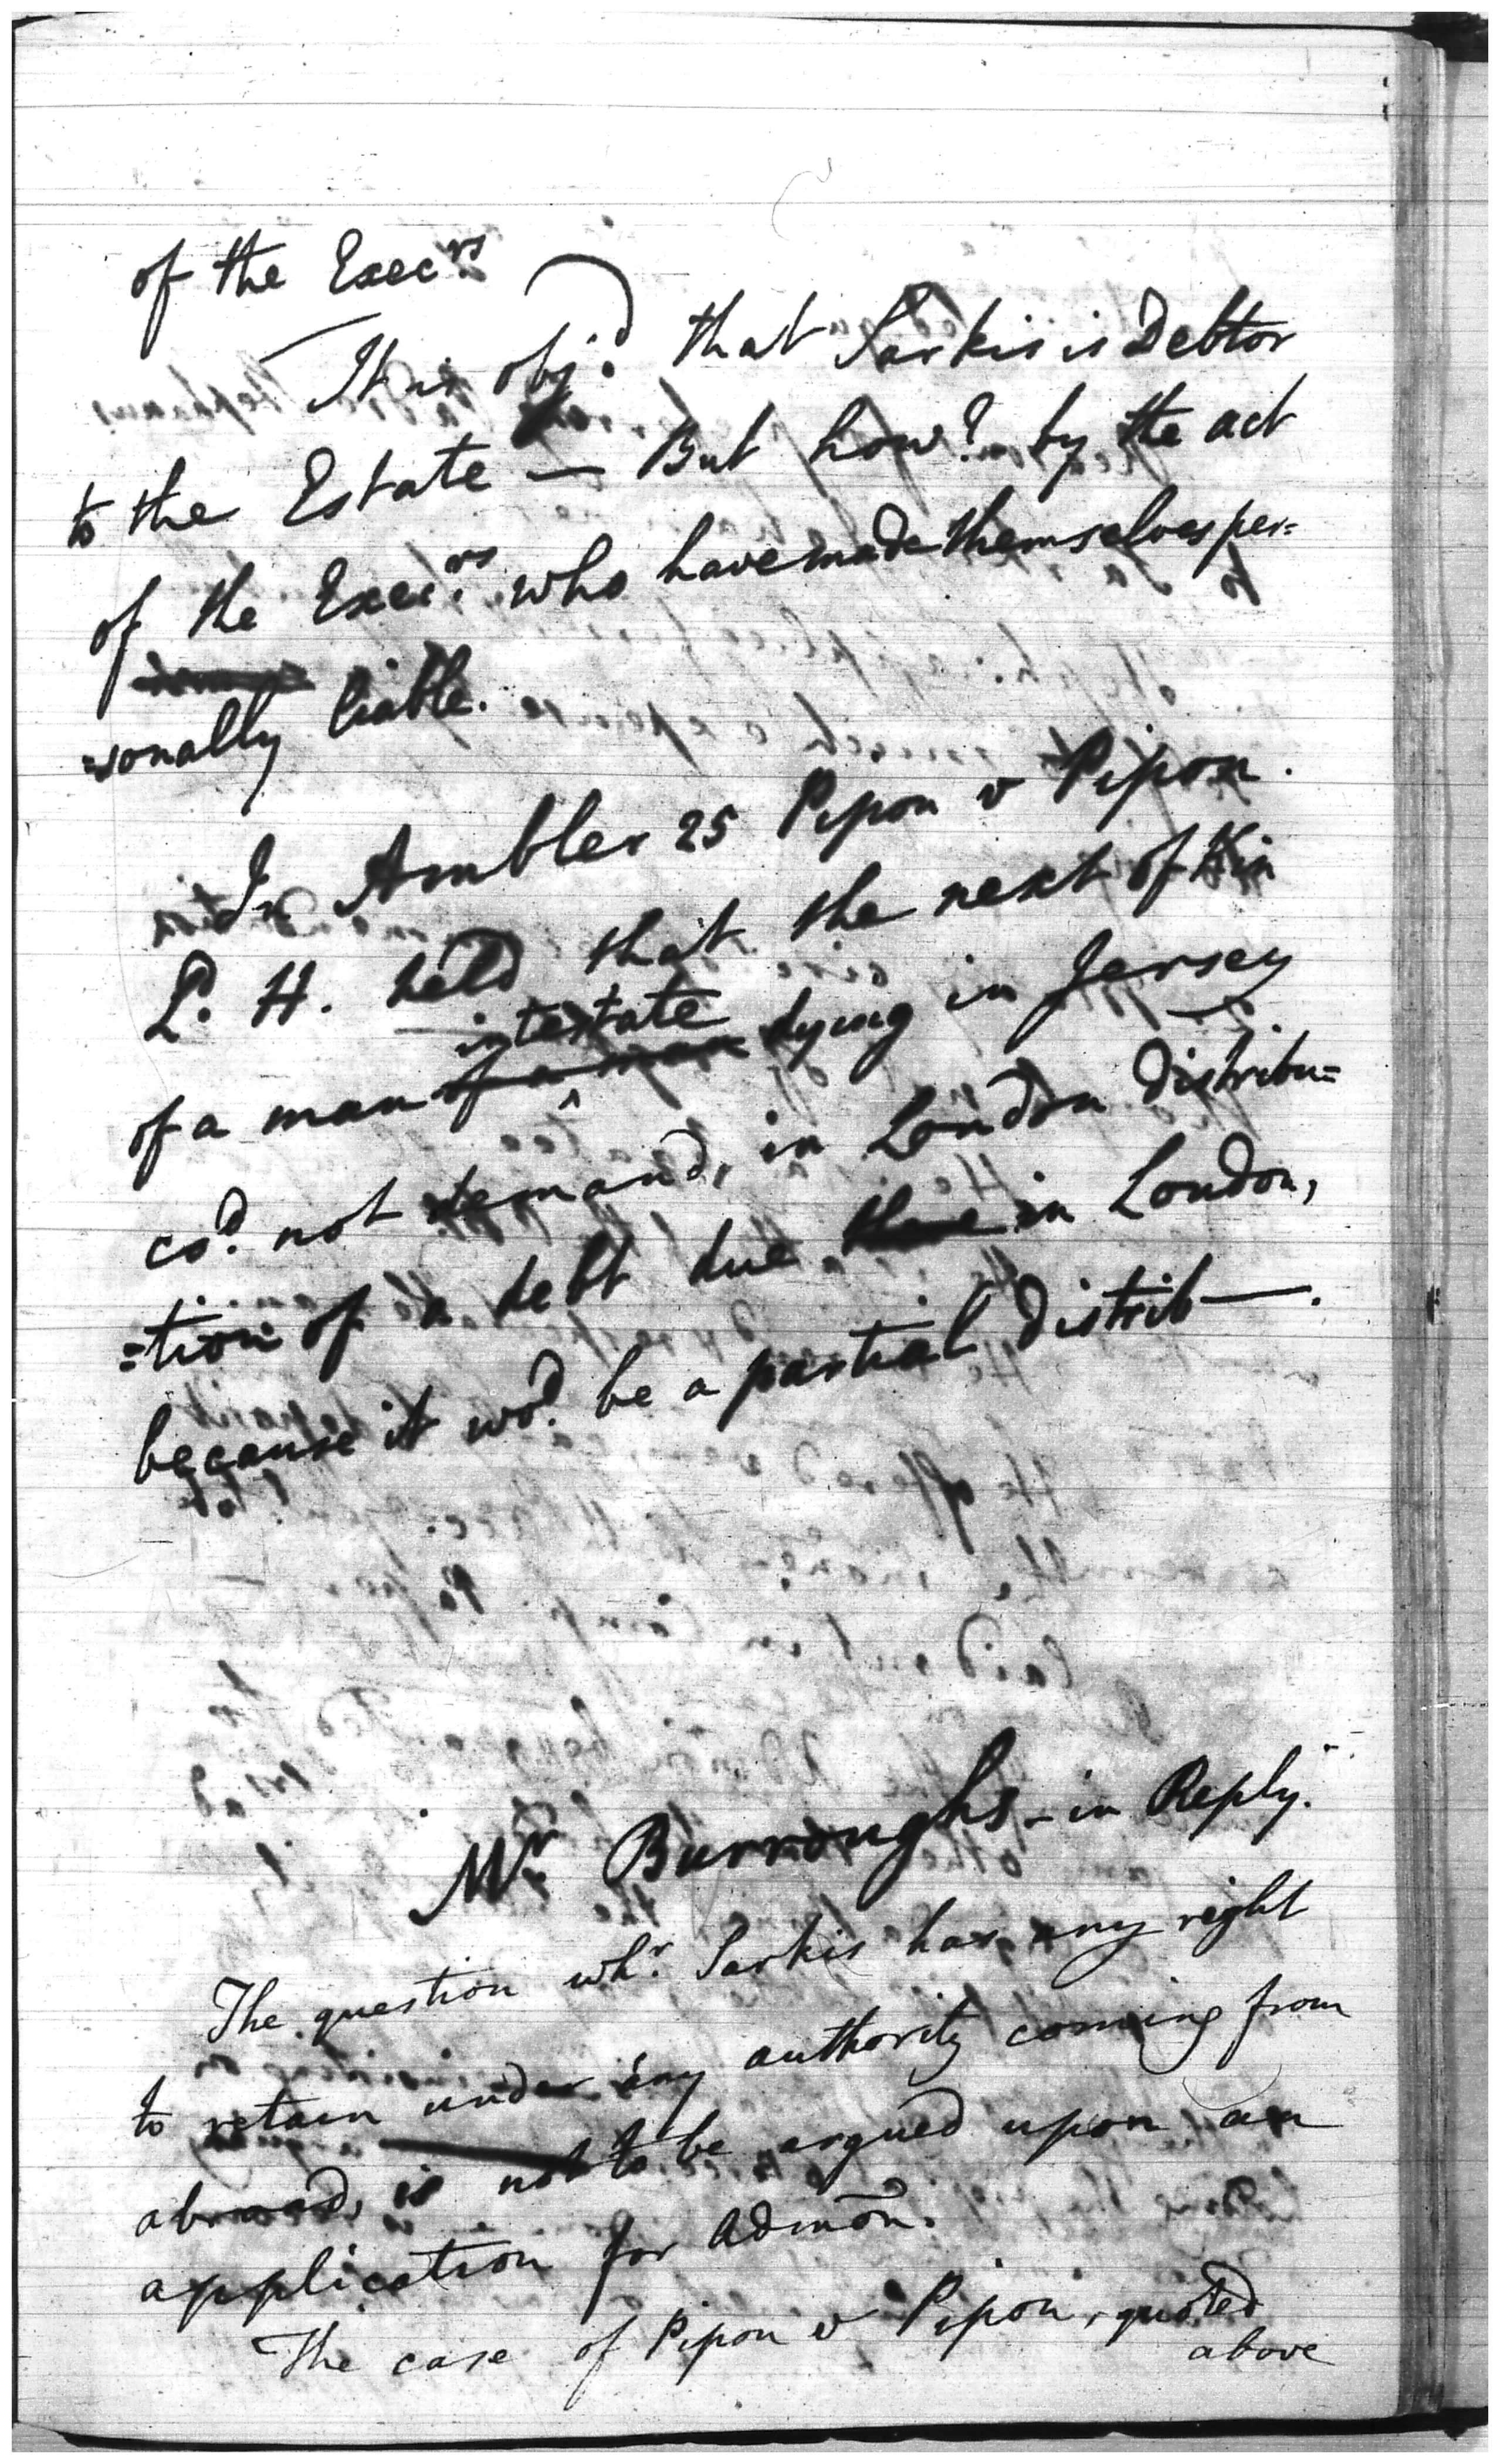 of the Execrs
It is objd. that Sarkis is Debtor
to the Estate — But how? by the act
of the Execrs. who have made themselves per=
=sonally liable.
In Ambler 25 Pipon v Pipon.
Ld. H. held that the next of Kin
of a man intestate dying in Jersey
cod. not demand, in London distribu=
=tion of a debt due in London,
because it wod. be a partial distrib—.
Mr. Burroughs - in Reply.
The question whr. Sarkis has any right
to retain under any authority coming from
abroad, is not to be argued upon an
application for Admon.
The case of Pipon v Pipon, quoted
above